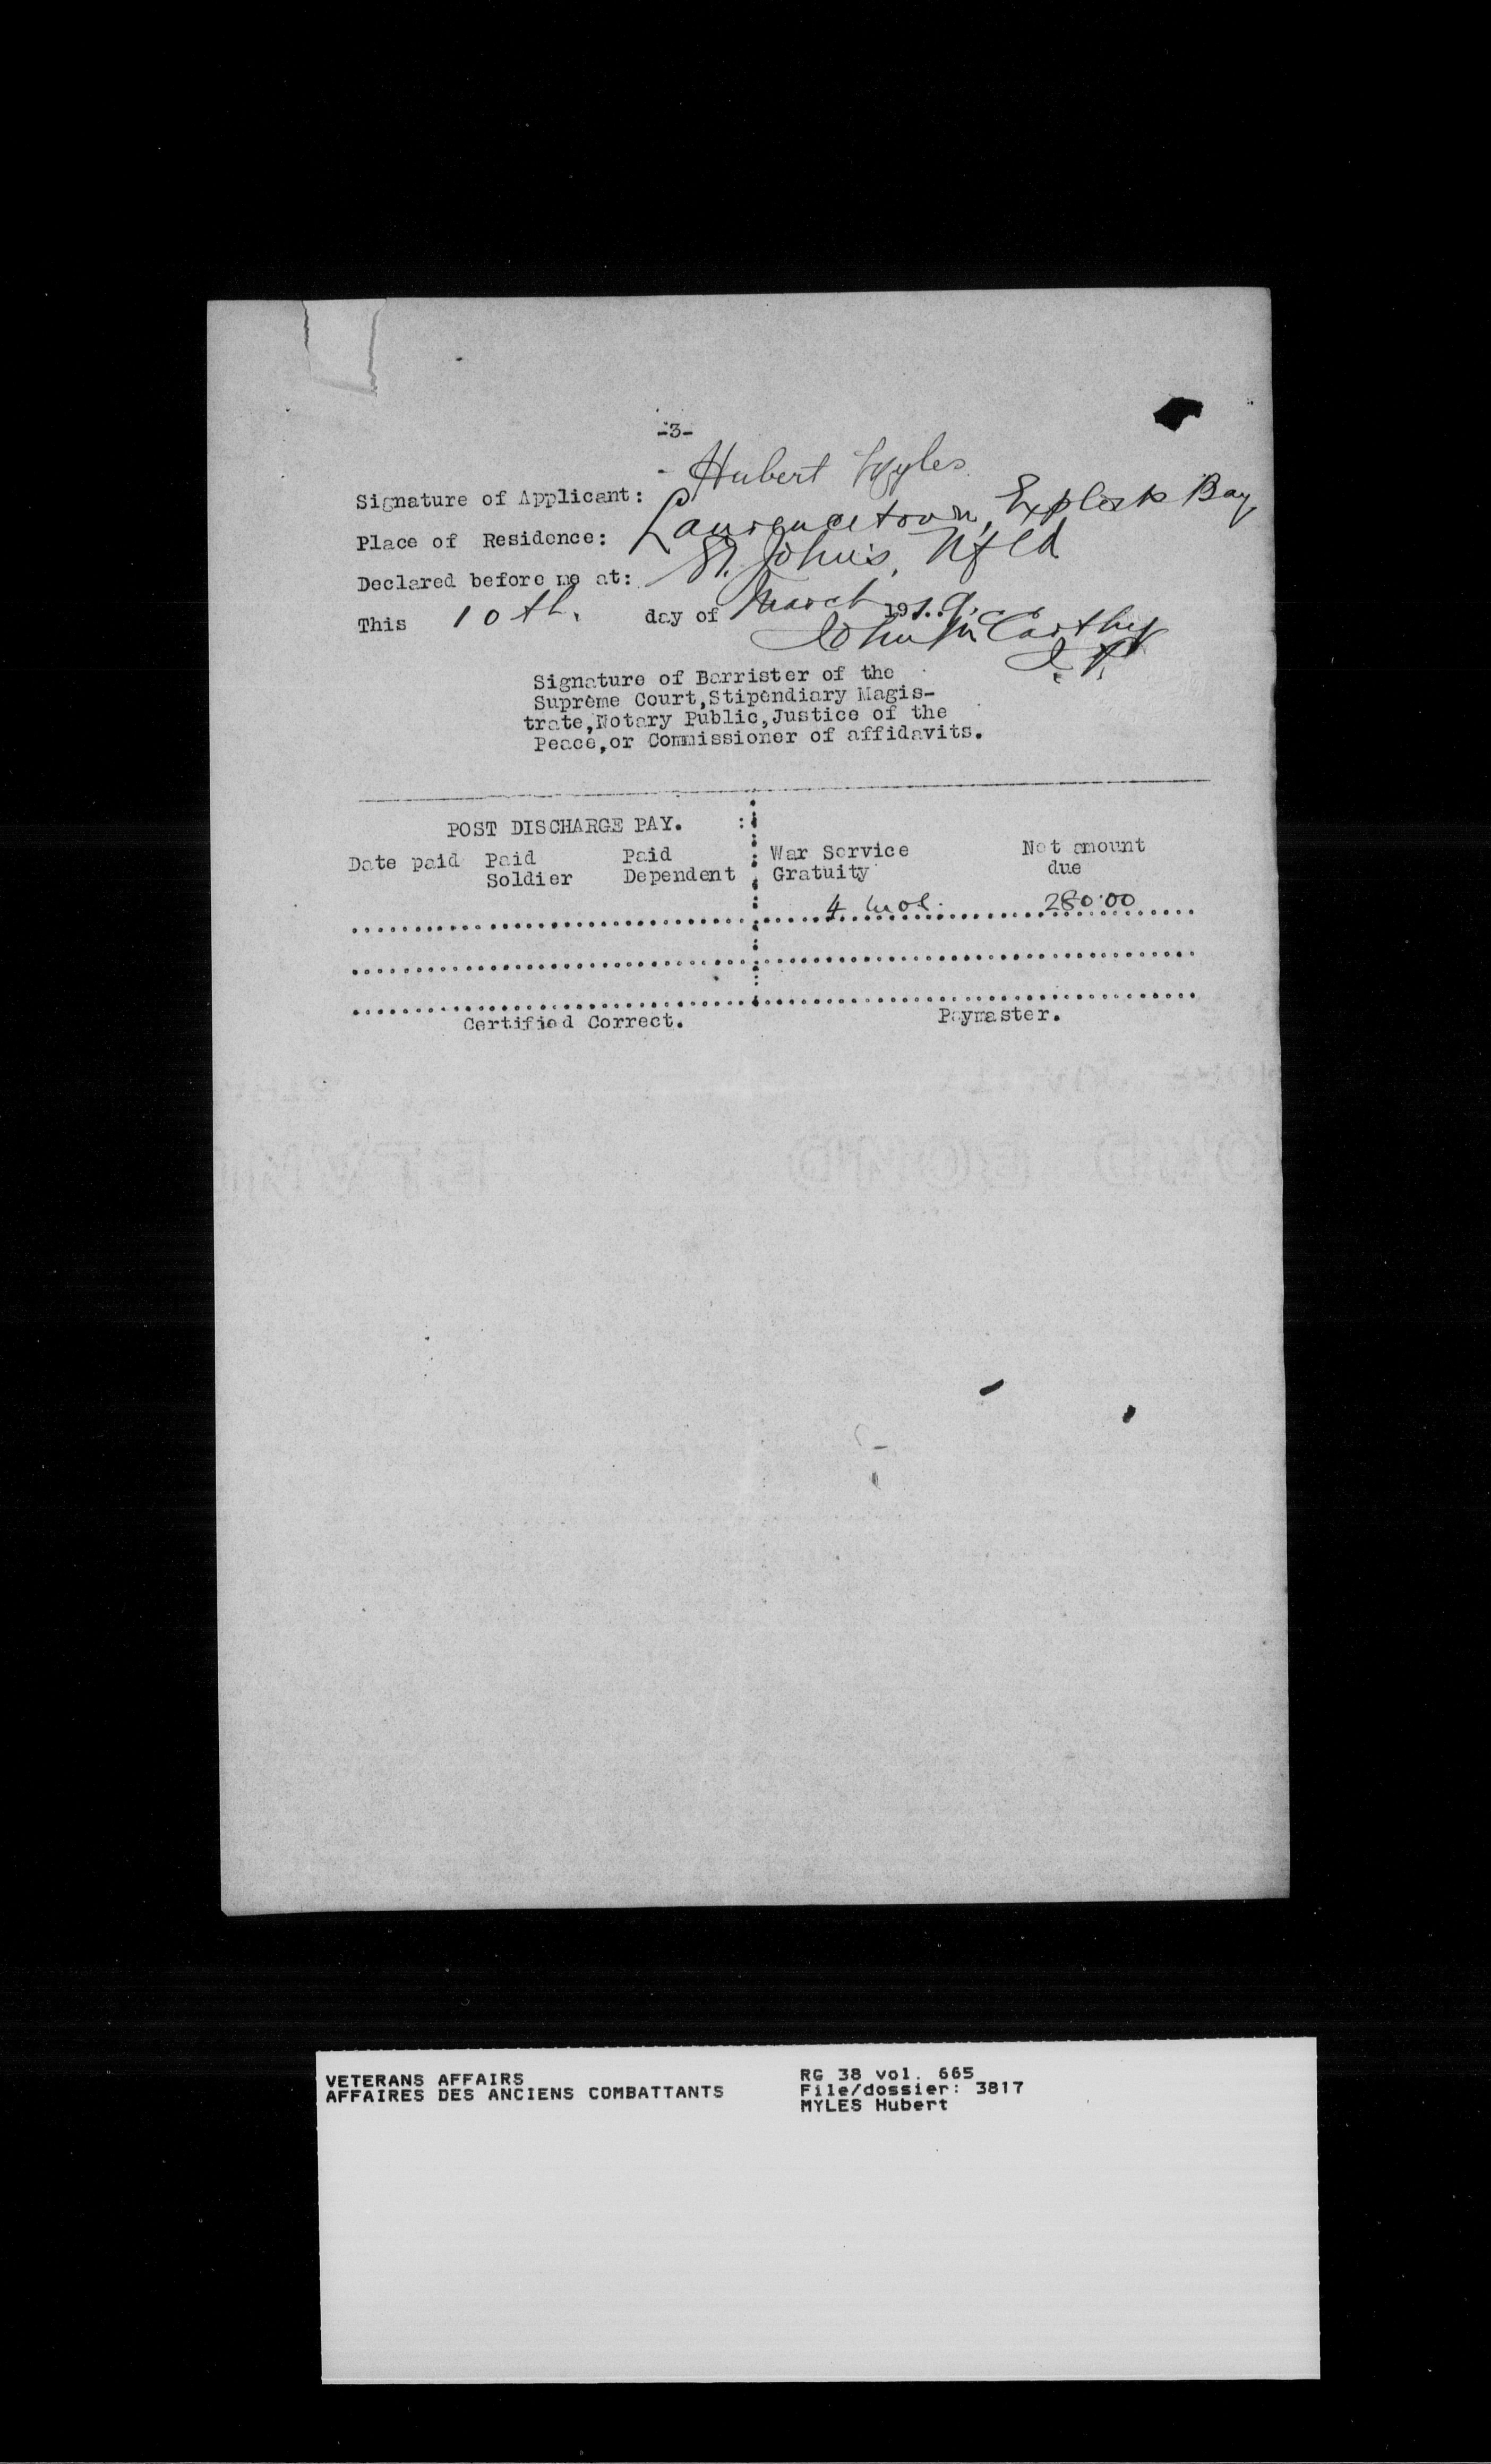 -3-
Signature of Applicant: Hubert Myles
Place of Residence: Laurencetown, Exploits Bay
Declared before me at: St. John's, Nfld
This 10th. day of March 1919.
John McCarthy
J.P.
Signature of Barrister of the
Supreme Court, Stipendiary Magis-
trate, Notary Public, Justice of the
Peace, or Commissioner of affidavits.
POST DISCHARGE PAY. :
Date paid Paid Soldier Paid Dependent War Service Gratuity Net amount due
4 mos. 280.00
Certified Correct. Paymaster.
VETERANS AFFAIRS
AFFAIRES DES ANCIENS COMBATTANTS
RG 38 vol. 665
File/dossier: 3817
MYLES Hubert